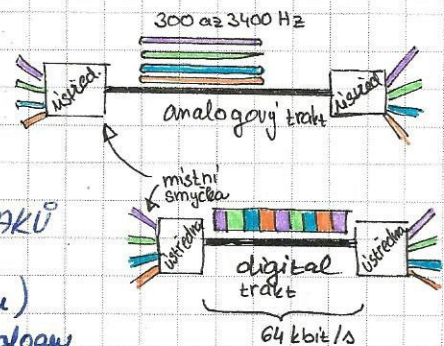 300 až 3400 Hz
ústřed.
ústřed.
analogový trakt
místní
smyčka
AKŮ
ústředna
ústředna
digital
trakt
64 kbit/s